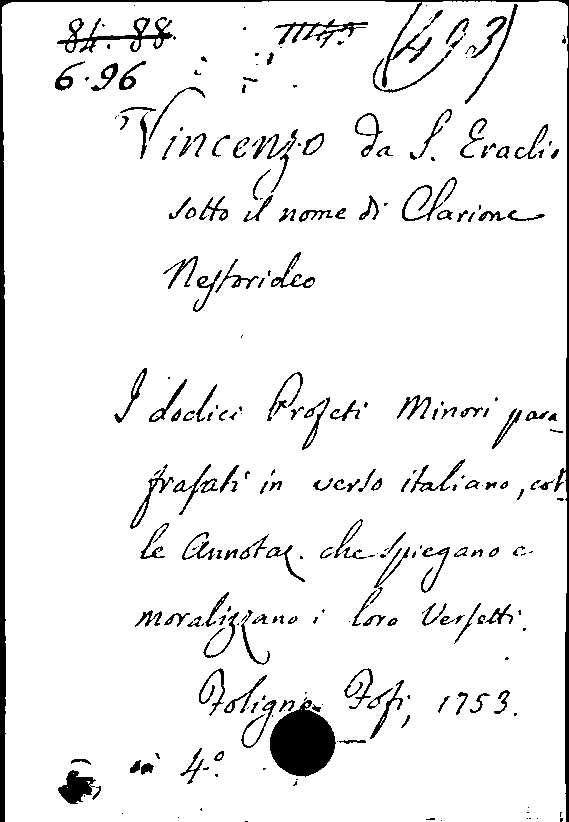 84. 88. (493)
6.96
Vincenzo da S. Eraclio
sotto il nome di Clarione
Nestorideo
I dodici Profeti Minori para
frasati in verso italiano, col
le Annotaz. che spiegano e
moralizzano i loro Versetti.
Foligno Fofi, 1753.
in 4.º